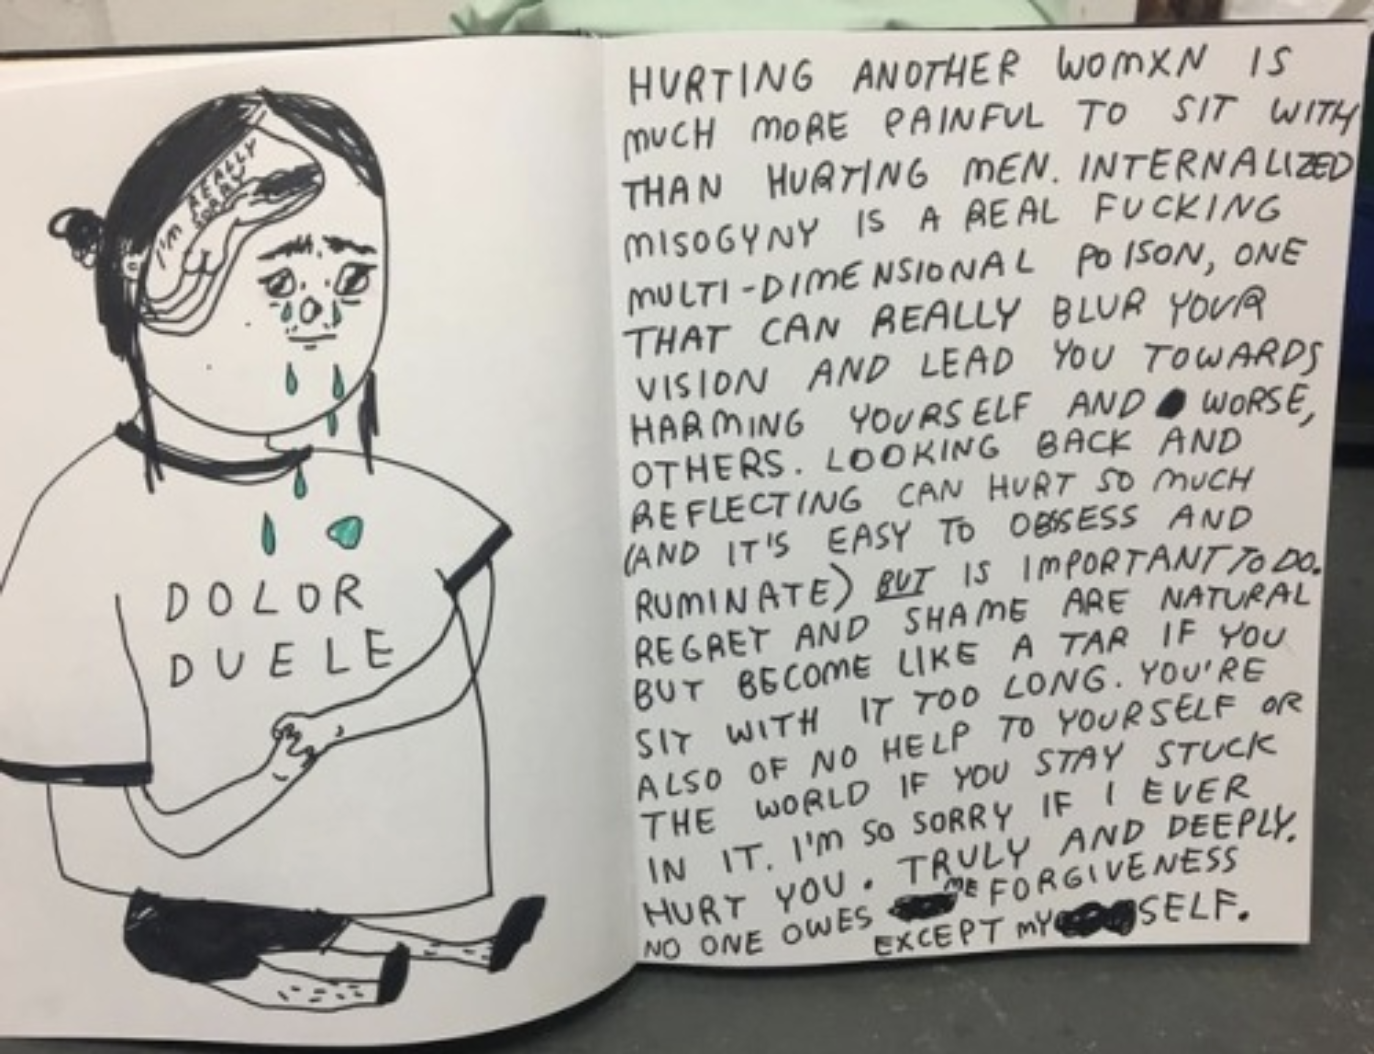 I'M REALLY
SORRY
DOLOR
DUELE
HURTING ANOTHER WOMXN IS
MUCH MORE PAINFUL TO SIT WITH
THAN HURTING MEN. INTERNALIZED
MISOGYNY IS A REAL FUCKING
MULTI-DIMENSIONAL POISON, ONE
THAT CAN REALLY BLUR YOUR
VISION AND LEAD YOU TOWARDS
HARMING YOURSELF AND WORSE,
OTHERS. LOOKING BACK AND
REFLECTING CAN HURT SO MUCH
(AND IT'S EASY TO OBSESS AND
RUMINATE) BUT IS IMPORTANT TO DO.
REGRET AND SHAME ARE NATURAL
BUT BECOME LIKE A TAR IF YOU
SIT WITH IT TOO LONG. YOU'RE
ALSO OF NO HELP TO YOURSELF OR
THE WORLD IF YOU STAY STUCK
IN IT. I'M SO SORRY IF I EVER
HURT YOU. TRULY AND DEEPLY.
NO ONE OWES ME FORGIVENESS
EXCEPT MYSELF.